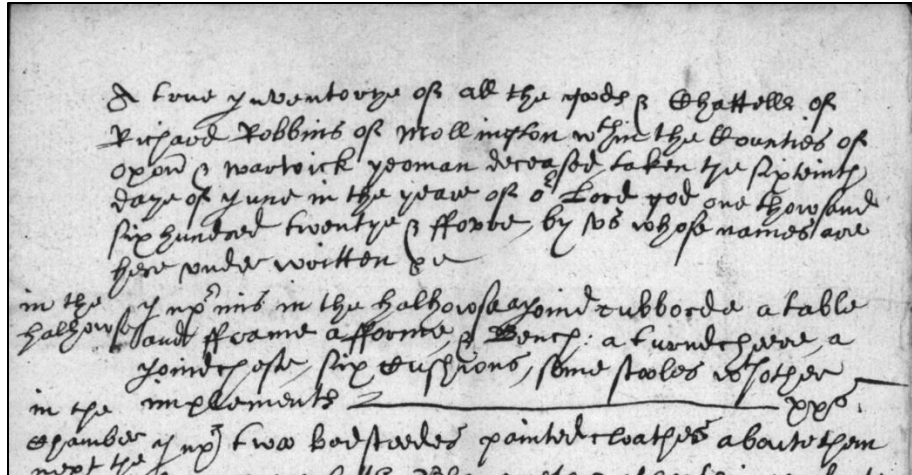 A true Inventorye of all the goods & Chattells of
Richard Robbins of Mollington wthin the Counties of
Oxon & Warwick yeoman deceased, taken the sixteinth
daye of June in the yeare of or Lord god one thowsand
six hundred twentye & ffowre, by us whose names are
here under written &c
in the Inprimis in the halhowse a Joind cubborde a table
halhowse and fframe a fforme, & Bench: a turnd cheere, a
Joind cheste, six Cushions, some stooles wth other
in the implements xxs
Chamber Inp two bedsteedes painted cloathes aboute them
next the